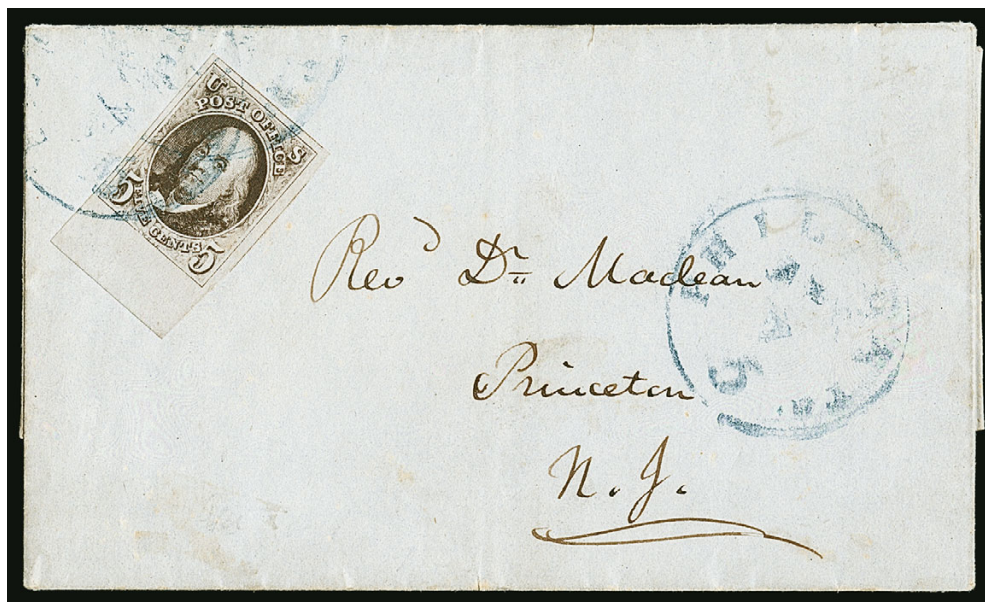 U S
POST OFFICE
5 5
FIVE CENTS
Rev^d Dr. Maclean
Princeton
N. J.
PHIL
5